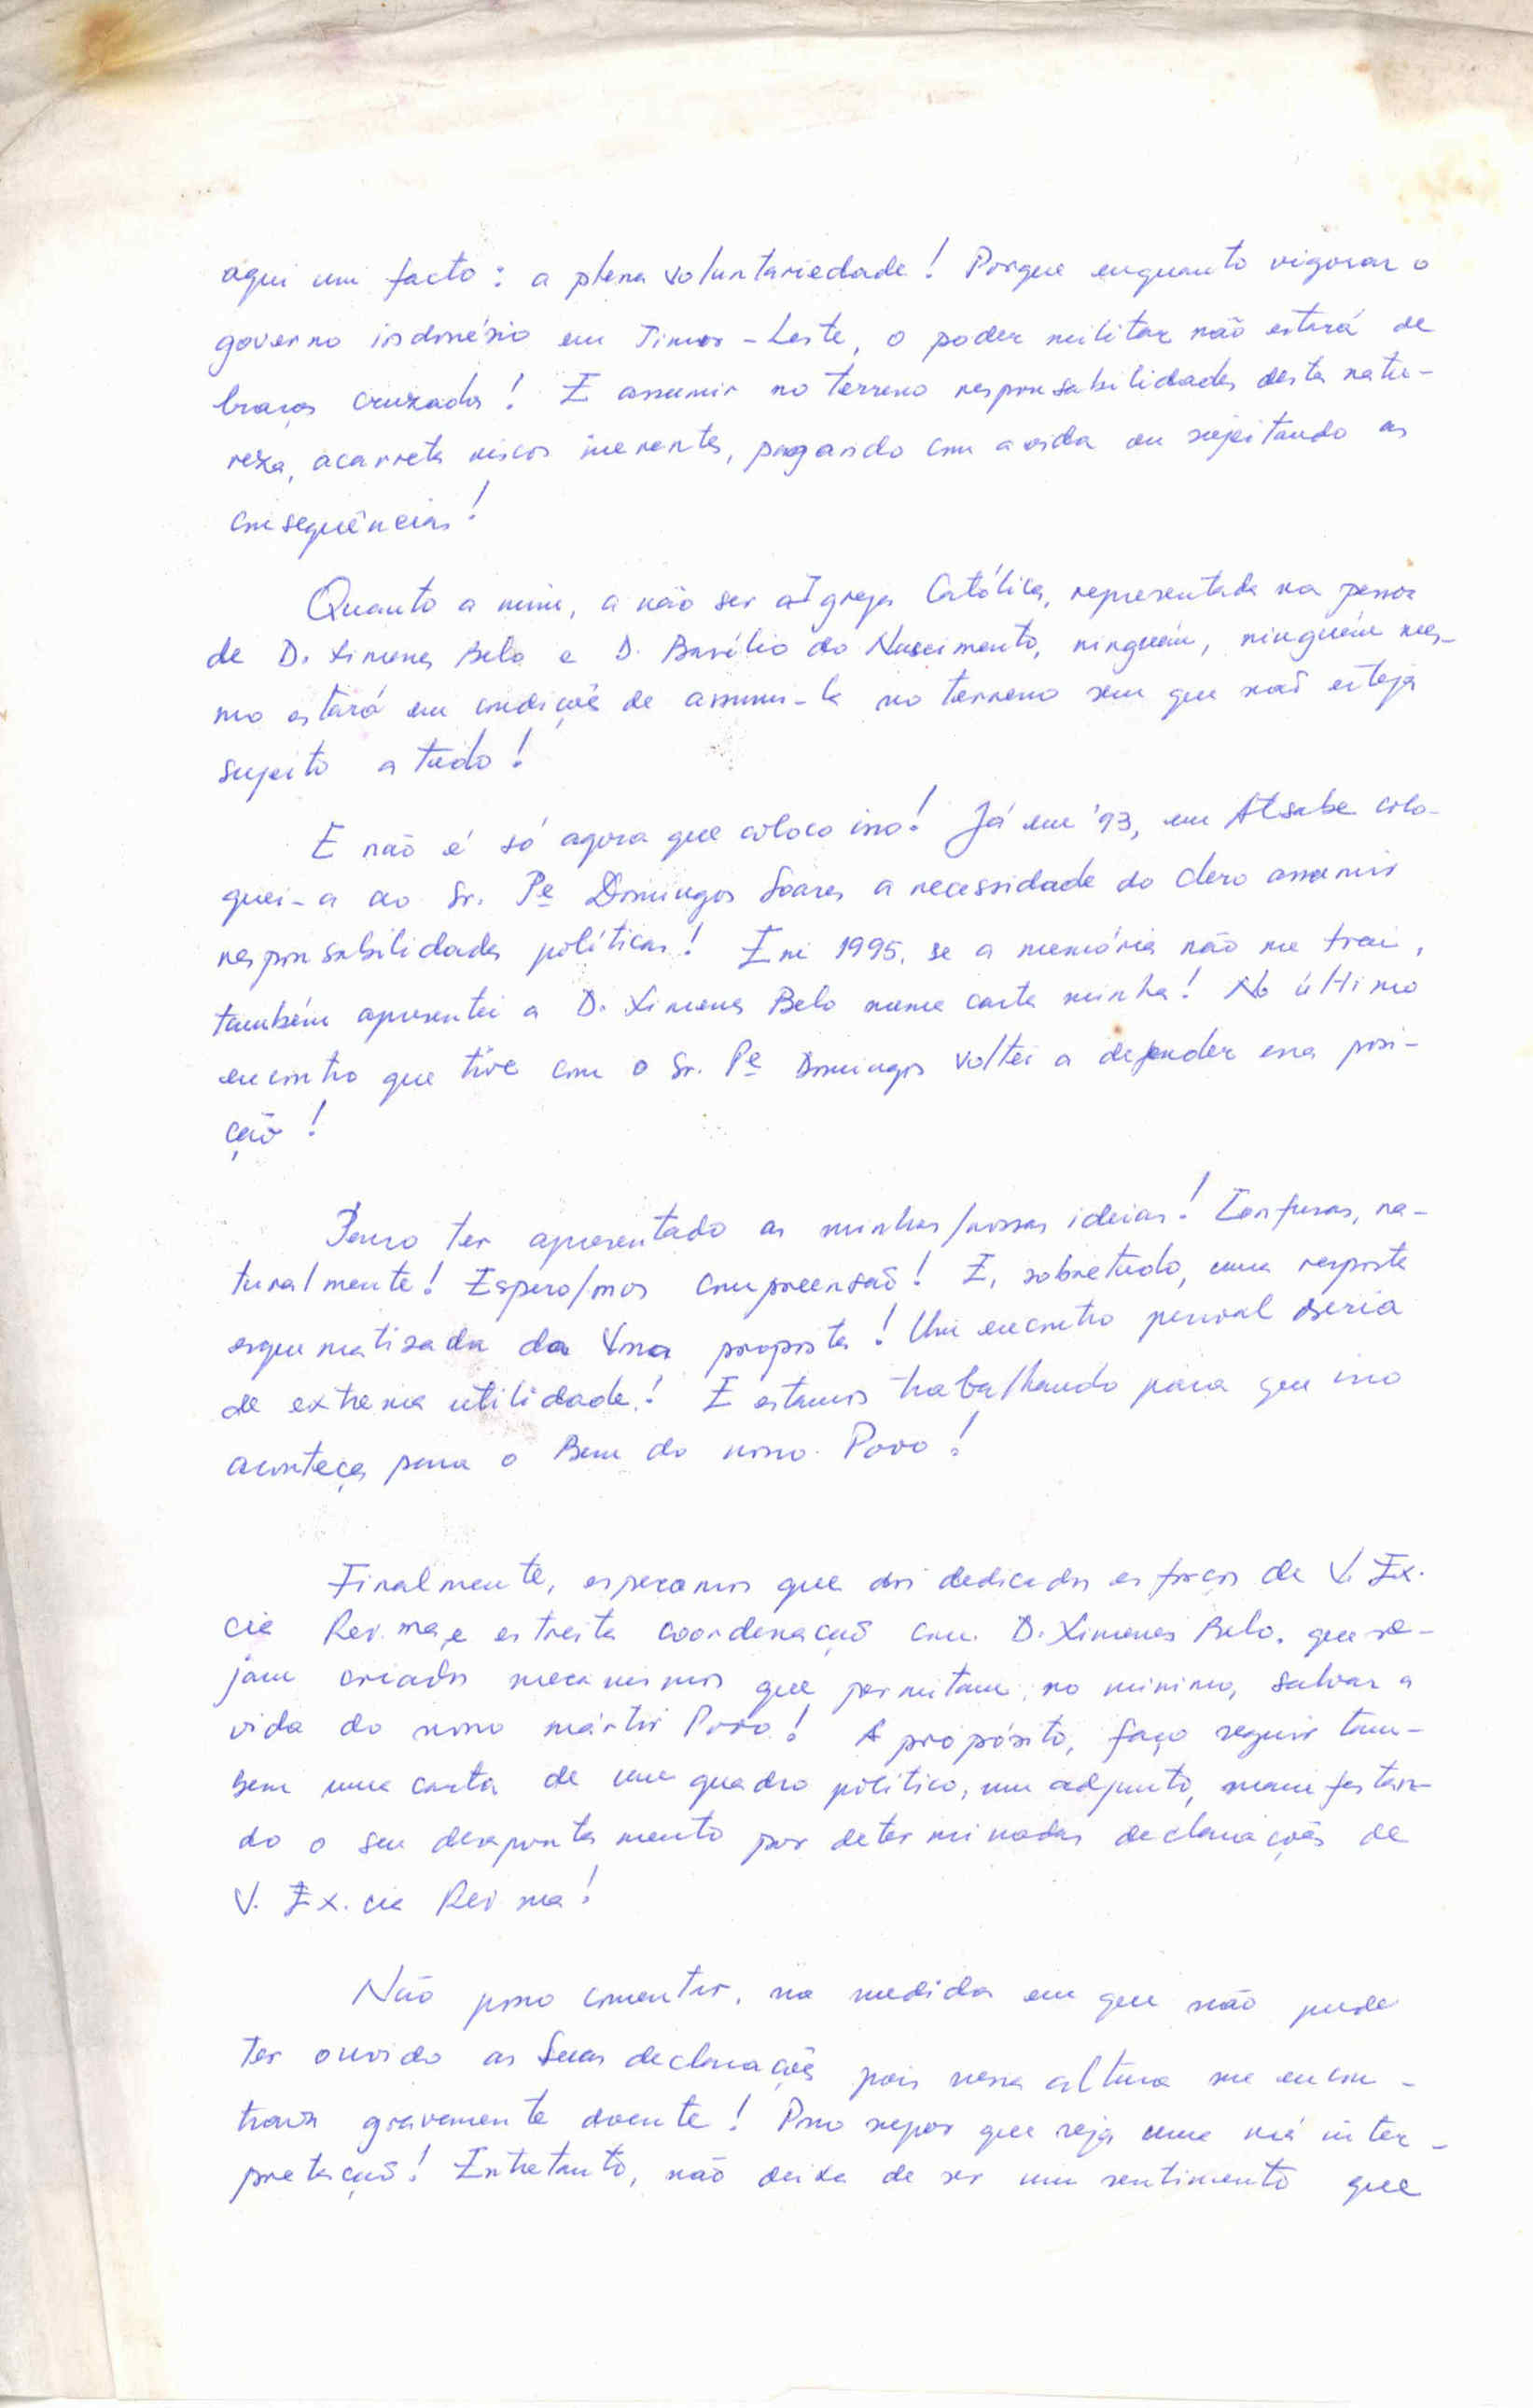 aqui um facto: a plena voluntariedade! Porque enquanto vigorar o
governo indonésio em Timor-Leste, o poder militar não estará de
braços cruzados! E assumir no terreno responsabilidades desta natu-
reza, acarreta riscos inerentes, pagando com a vida ou sujeitando as
consequências!
Quanto a mim, a não ser a Igreja Católica, representada na pessoa
de D. Ximenes Belo e D. Basílio do Nascimento, ninguém, ninguém mes-
mo estará em condições de assumi-la no terreno sem que não esteja
sujeito a tudo!
E não é só agora que coloco isso! Já em '93, em Atsabe colo-
quei-a ao Sr. Pe Domingos Soares a necessidade do clero assumir
responsabilidades políticas! Em 1995, se a memória não me trai,
também apresentei a D. Ximenes Belo numa carta minha! No último
encontro que tive com o Sr. Pe Domingos voltei a defender essa posi-
ção!
Penso ter apresentado as minhas/nossas ideias! Confusas, na-
turalmente! Espero/mos compreensão! E, sobretudo, uma resposta
esquematizada da Vossa proposta! Um encontro pessoal seria
de extrema utilidade! E estamos trabalhando para que isso
aconteça para o Bem do nosso Povo!
Finalmente, esperamos que dos dedicados esforços de V. Ex.
cia Rev. ma e estreita coordenação com D. Ximenes Belo, que se-
jam criados mecanismos que permitam, no mínimo, salvar a
vida do nosso mártir Povo! A propósito, faço seguir tam-
bem uma carta de um quadro político, um adjunto, manifestan-
do o seu desapontamento por determinadas declarações de
V. Ex. cia Rev ma!
Não posso comentar, na medida em que não pude
ter ouvido as Suas declarações pois nessa altura me encon-
trava gravemente doente! Posso supor que seja uma má inter-
pretação! Entretanto, não deixa de ser um sentimento que